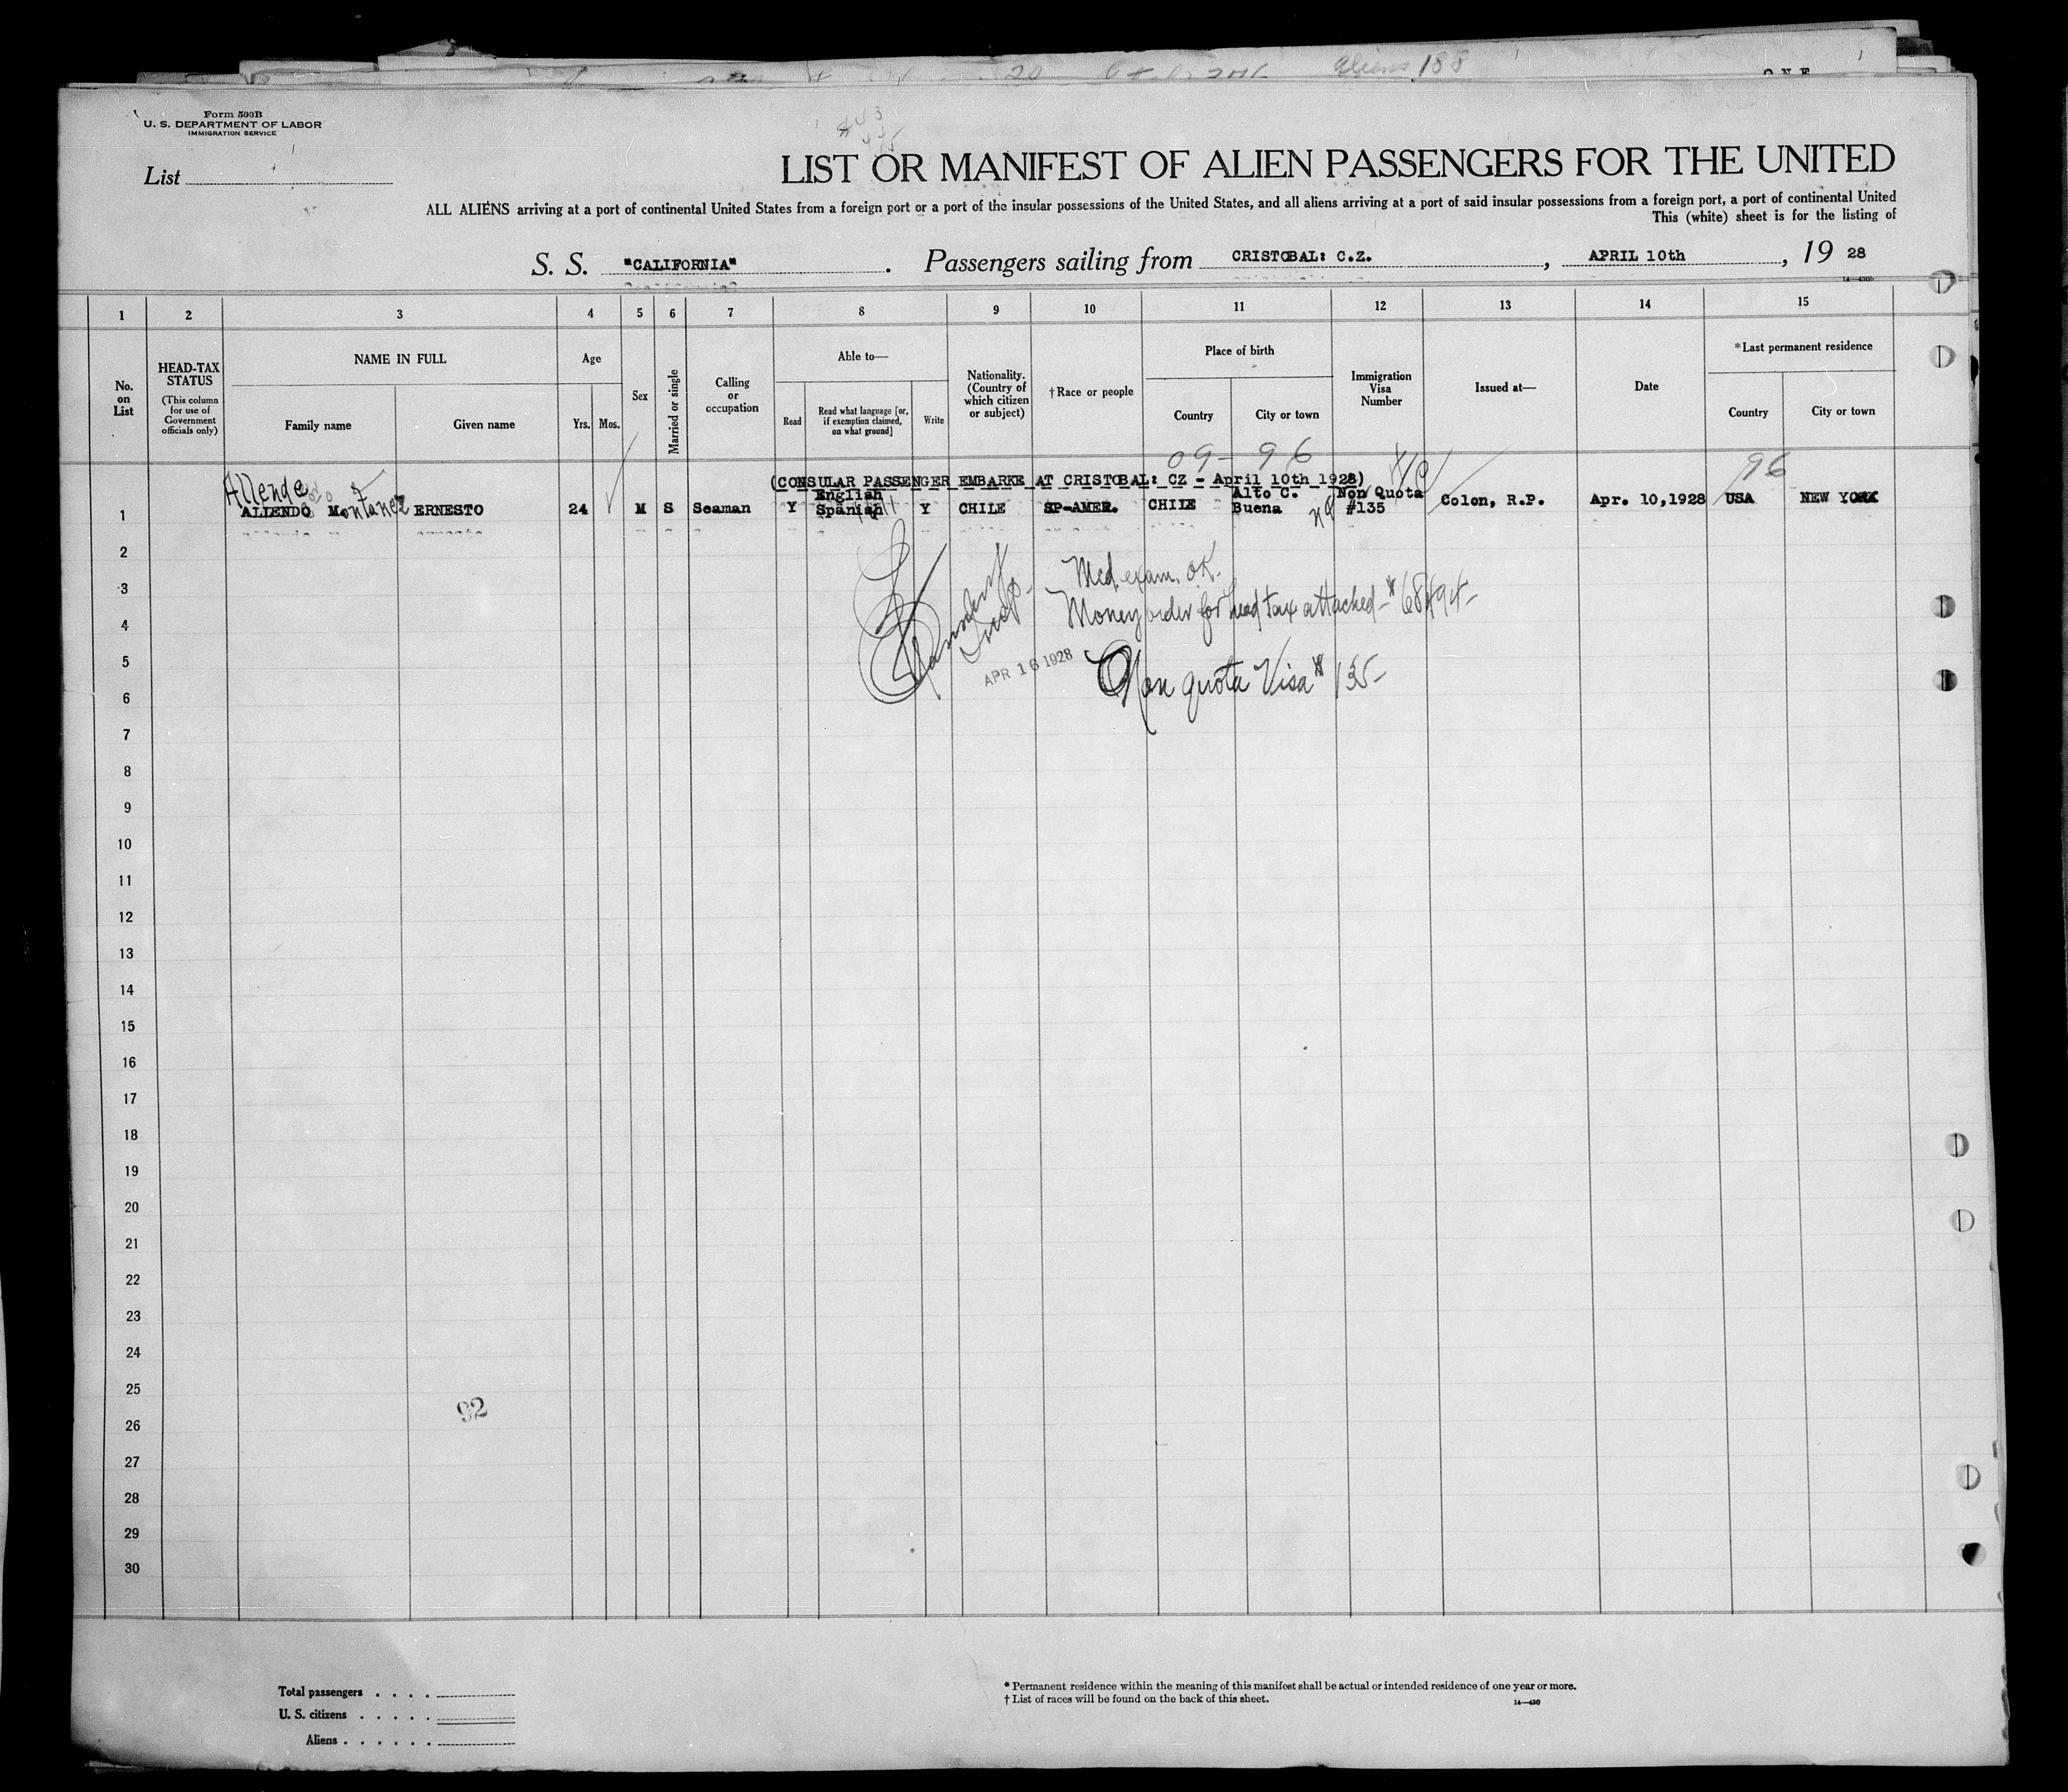 Aliens 188
ONE
Form 500B
U. S. DEPARTMENT OF LABOR
IMMIGRATION SERVICE
List
LIST OR MANIFEST OF ALIEN PASSENGERS FOR THE UNITED
ALL ALIENS arriving at a port of continental United States from a foreign port or a port of the insular possessions of the United States, and all aliens arriving at a port of said insular possessions from a foreign port, a port of continental United
This (white) sheet is for the listing of
S. S. "CALIFORNIA". Passengers sailing from CRISTOBAL: C.Z., APRIL 10th, 19 28
1 2 3 4 5 6 7 8 9 10 11 12 13 14 15
No. on List
HEAD-TAX STATUS (This column for use of Government officials only)
NAME IN FULL
Family name Given name
Age
Yrs. Mos.
Sex
Married or single
Calling or occupation
Able to—
Read Read what language [or, if exemption claimed, on what ground] Write
Nationality. (Country of which citizen or subject)
†Race or people
Place of birth
Country City or town
Immigration Visa Number
Issued at—
Date
*Last permanent residence
Country City or town
09-96
96
(CONSULAR PASSENGER EMBARKE AT CRISTOBAL: CZ - April 10th 1928)
Allende
English Alto C. Non Quota
1 ALLENDO Montanez ERNESTO 24 M S Seaman Y Spanish Y CHILE SP-AMER. CHILE Buena #135 Colon, R.P. Apr. 10,1928 USA NEW YORK
2
Med. exam. OK.
3
Money order for head tax attached - #
4
5
APR 16 1928
Non quota Visa # 135-
6
7
8
9
10
11
12
13
14
15
16
17
18
19
20
21
22
23
24
25
92
26
27
28
29
30
Total passengers . . . .
U. S. citizens . . . . .
Aliens . . . . . .
* Permanent residence within the meaning of this manifest shall be actual or intended residence of one year or more.
† List of races will be found on the back of this sheet.
14—430